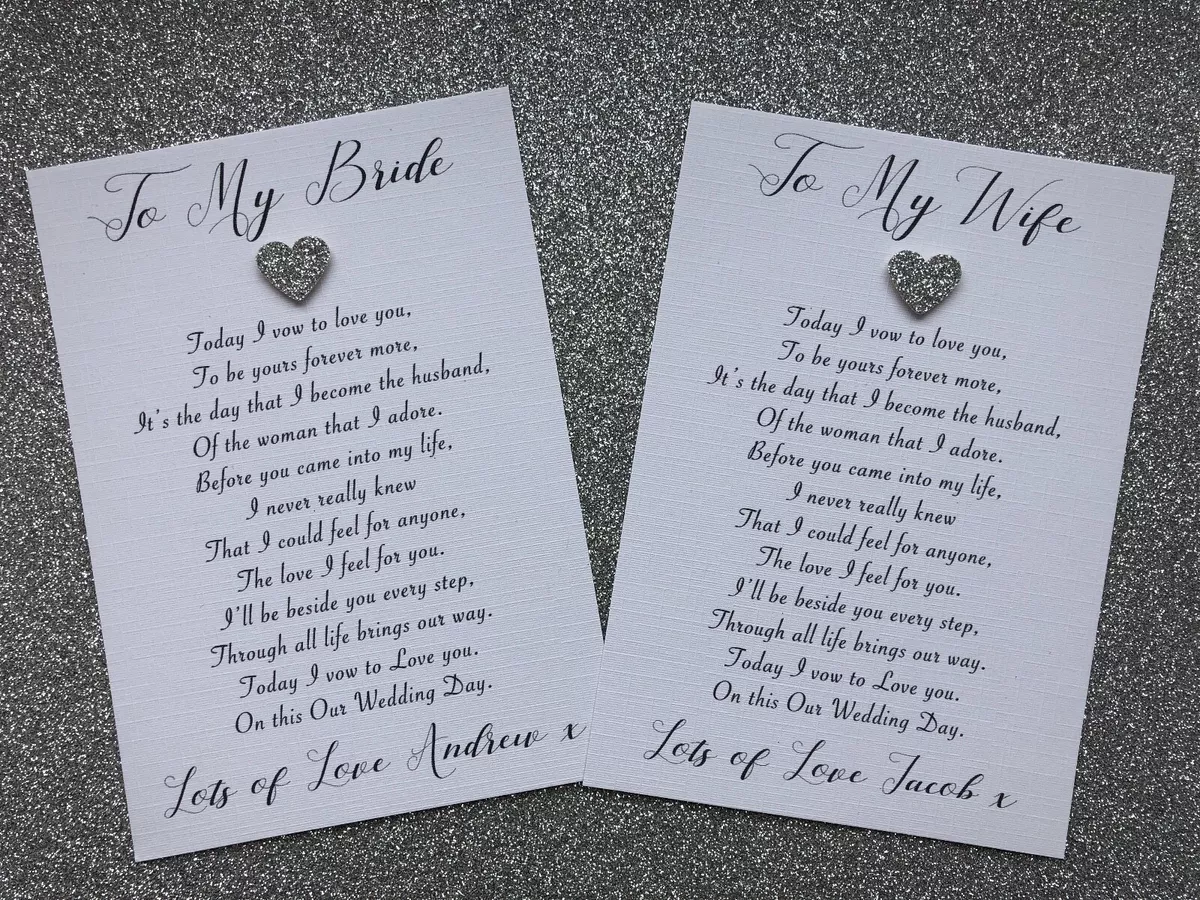 To My Bride
Today I vow to love you,
To be yours forever more,
It's the day that I become the husband,
Of the woman that I adore.
Before you came into my life,
I never really knew
That I could feel for anyone,
The love I feel for you.
I'll be beside you every step,
Through all life brings our way.
Today I vow to Love you.
On this Our Wedding Day.
Lots of Love Andrew x
To My Wife
Today I vow to love you,
To be yours forever more,
It's the day that I become the husband,
Of the woman that I adore.
Before you came into my life,
I never really knew
That I could feel for anyone,
The love I feel for you.
I'll be beside you every step,
Through all life brings our way.
Today I vow to Love you.
On this Our Wedding Day.
Lots of Love Jacob x